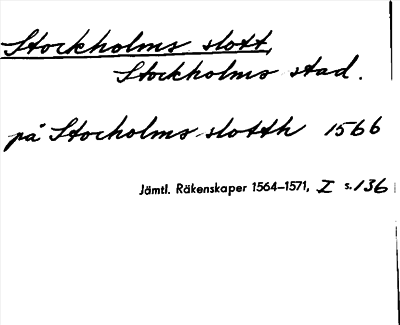 Stockholms slott,
Stockholms stad.
på Stocholms slotth 1566
Jämtl. Räkenskaper 1564–1571, I s. 136